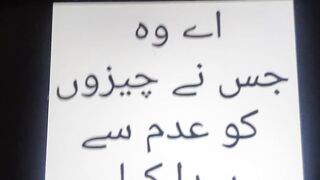 اے وہ
جس نے چیزوں
کو عدم سے